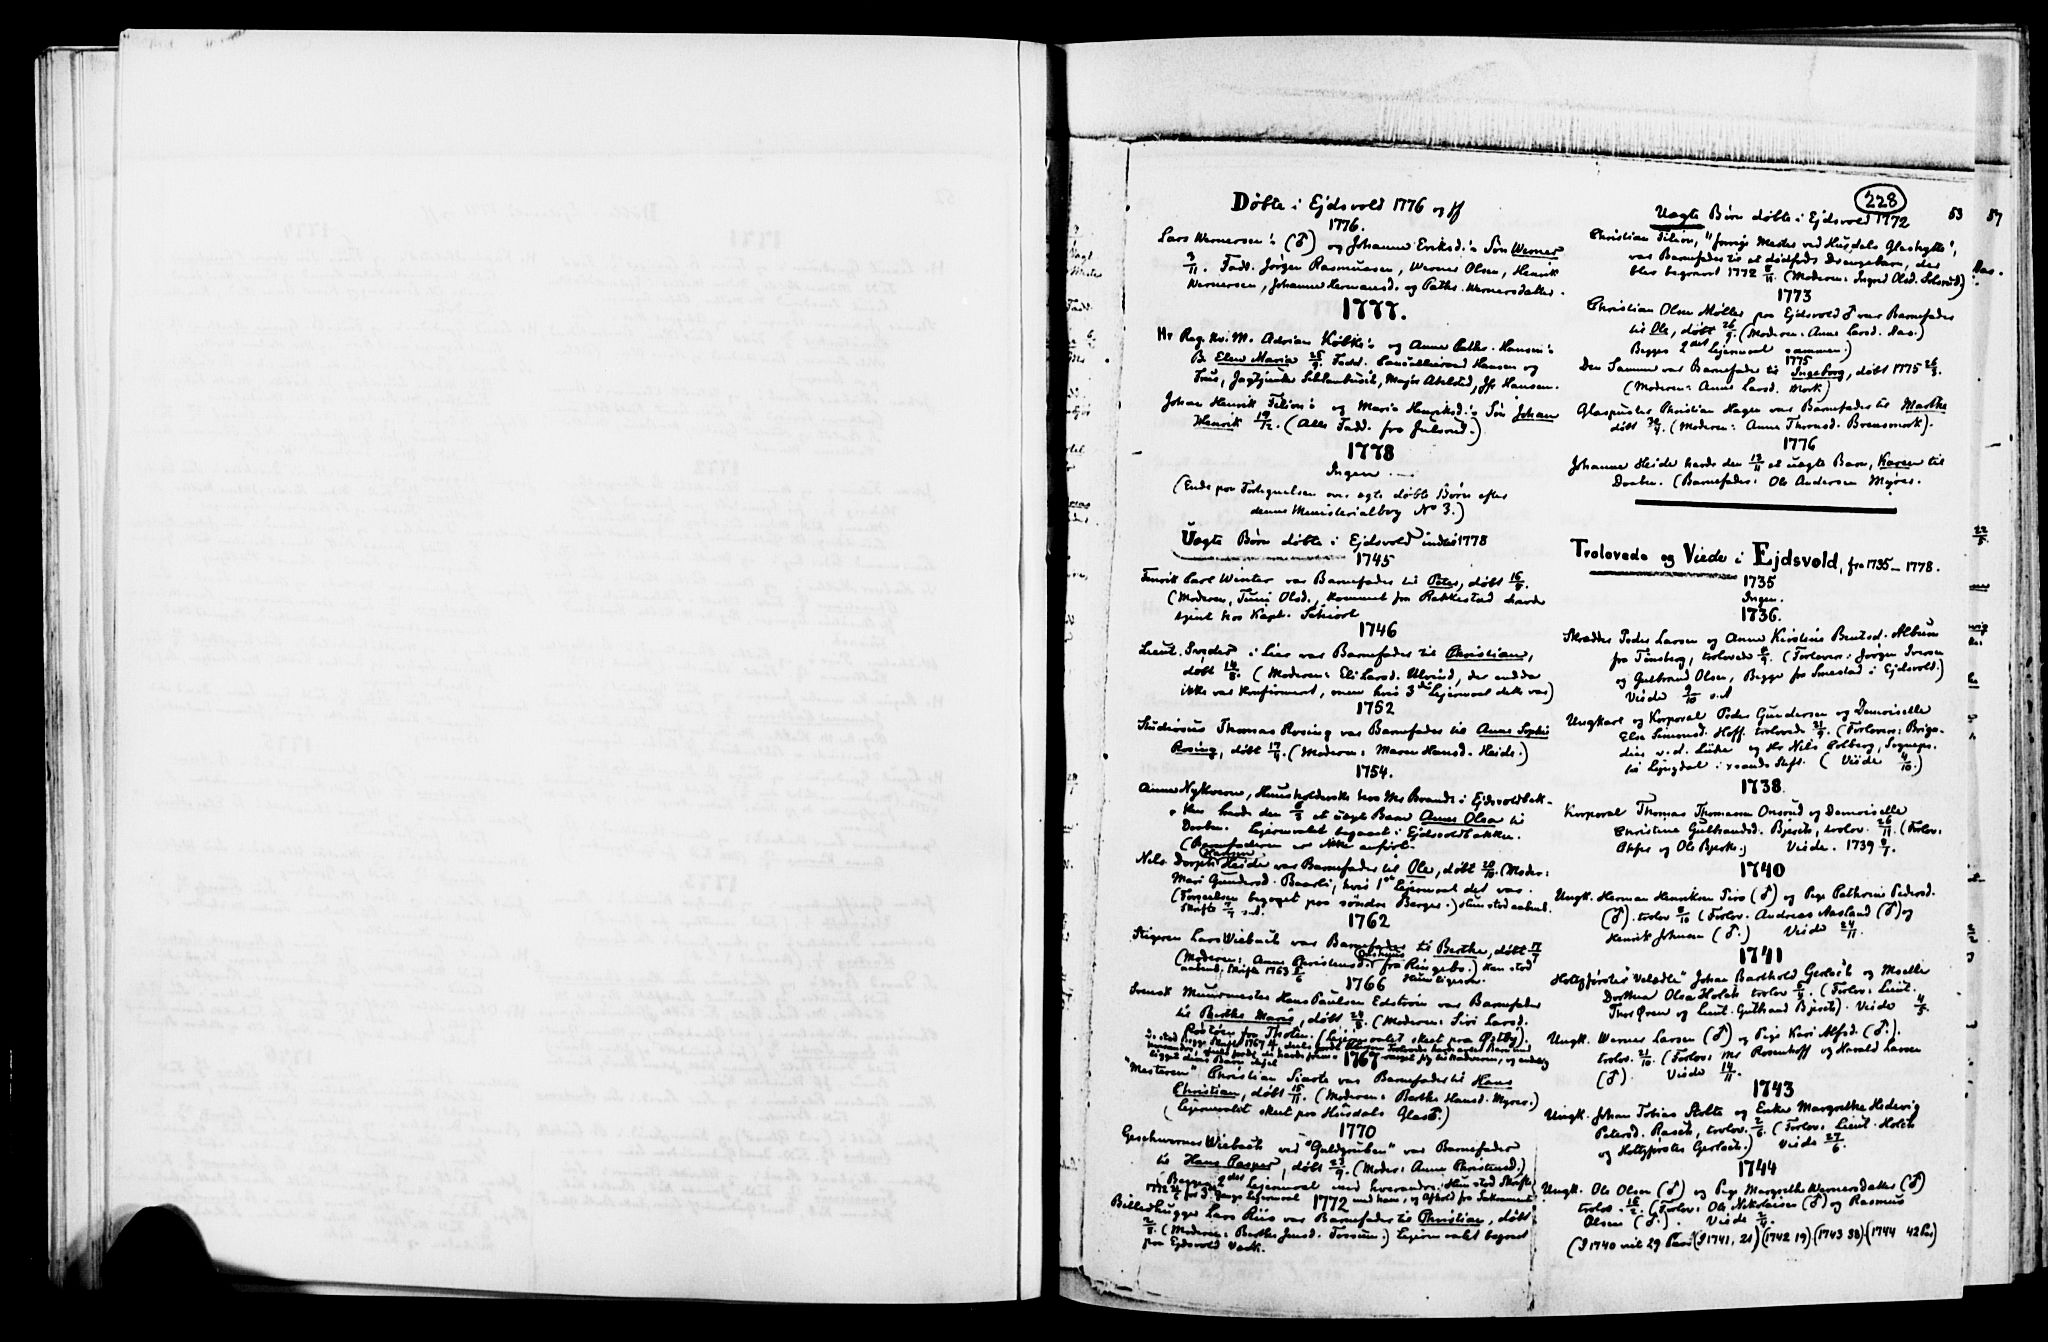 228
53
57
Døbte i Ejdsvold 1776 og ff
1776.
Lars Wernersen's (♂) og Johanne Eriksd.'s Søn Werner
3/11. Fadd. Jørgen Rasmussen, Werner Olsen, Henrik
Wernersen, Johanne Hermansd. og Cathr. Wernersdatter.
1777.
Hr Reg. Kv. M. Adrian Købke's og Anne Cathr. Hansen's
B. Elen Maria 25/9. Fadd. Cancellieraad Hansen og
Frue, Jagtjunker Schlanbusch, Major Abelsted, Jfr Hansen.
Johan Henrik Filion's og Maria Henriksd.'s Søn Johan
Henrik 19/12. (Alle Fadd. fra Julsrud.)
1778
Ingen
(Ende paa Fortegnelsen over ægte døbte Børn efter
denne Ministerialbog No 3.)
Uægte Børn døbte i Ejdsvold indtil 1778
1745
Henrik Carl Winter var Barnefader til Peter, døbt 16/5.
(Moderen, Tuni Olsd., kommet fra Rakkestad havde
tjent hos Kapt. Schiort
1746
Lieut. Sneder i Lier var Barnefader til Christian,
døbt 14/8. (Moderen: Eli Larsd. Ulvind, der endda
ikke var konfirmert, men hvis 3die Lejermaal dette var)
1752
Studiosus Thomas Rosing var Barnefader til Anne Sophie
Rosing, døbt 17/9. (Moderen: Maren Hansd. Heide.)
1754.
Anne Nykveen, Huusholderske hos Mr Brandt i Ejdsvoldbak-
ken havde den 8/3 et uægt Barn Anne Olea til
Daaben. Lejermaalet begaaet i Ejdsvoldbakken.
(Barnefaderen er ikke anført.
Nils Dorph Hansen Heide var Barnefader til Ole, døbt 20/10. (Moder:
Mari Gundersd. Baarli, hvis 1ste Lejermaal det var.
(Forseelsen begaaet paa søndre Berger.) Hun stod aabenb.
Skrifte 7/7 s.A.
1762
Stigeren Lars Wiebach var Barnefader til Berthe, døbt 17/7
(Moderen: Anne Christensd. fra Ringebo.) Han stod
aabenb. Skrifte 1763 Hun ligesaa.
1766
Svensk Muurmester Hans Paulsen Edström var Barnefader
til Berthe Marie, døbt 24/8. (Moderen: Siri Larsd.
Rødtøen fra Thoten. (Lejermaalet skeet paa Østby).
1767
"Mesteren" Christian Siarte var Barnefader til Hans
Christian, døbt 15/11. (Moderen: Berthe Hansd. Myrer.)
(Lejermaalet skeet paa Husdals Glasv.)
1770
Geschworner Wiebach ved "Guldgruben" var Barnefader
til Hans Casper, døbt 23/9. (Moder: Anne Christensd.)
Begges 2det Lejermaal med hverandre. Hun stod Skrifte
1772 for 3die Gangs Lejermaal med ham, og Afhold fra Sakrament
1772
Billedhugger Lars Riis var Barnefader til Christian, døbt
2/8. (Moderen: Berthe Jensd. Fossum.) Lejermaalet begaaet
paa Ejdsvold Værk.
Uægte Børn døbte i Ejdsvold 1772
Christian Filion, "forrige Mester ved Husdals Glashytte",
var Barnefader til et dødfødt Drengebarn, der
blev begravet 1772 8/11. (Moderen: Ingrid Olsd. Solsrud)
1773
Christian Olsen Møller paa Ejdsvold ♂ var Barnefader
til Ole, døbt 26/9. (Moderen: Anne Larsd. Aas.)
Begges 2det Lejermaal sammen.)
1775
Den Samme var Barnefader til Ingeborg, døbt 1775 26/3.
(Moderen: Anne Larsd. Mork)
Glaspuster Christian Hagen var Barnefader til Marthe
døbt 30/7. (Moderen: Anne Thronsd. Brensmork).
1776
Johanne Heide havde den 12/11 et uægte Barn, Karen til
Daaben. (Barnefader: Ole Andersen Myrer.
Trolovede og Viede i Ejdsvold, fra 1735–1778.
1735
Ingen.
1736.
Skrædder Peder Larsen og Anne Kirstine Bentsd. Album
fra Tønsberg, trolovede 8/9. (Forlovere: Jørgen Iversen
og Gulbrand Olsen, Begge fra Smestad i Ejdsvold.)
Viede 9/10 s.A
Ungkarl og Korporal Peder Gundersen og Demoiselle
Else Simonsd. Hoff. trolovede 21/9. (Forlovere: Briga-
dier v. d. Lühe og Hr Nils Colberg, Sognepr.
til Lyngdal i xsands Stift. (Viede 4/10.)
1738.
Korporal Thomas Thomasen Onsrud og Demoiselle
Christine Gulbrandsd. Bjerche, trolov. 26/11. (Forlov:
Chfse og Ole Bjerke.) Viede. 1739 8/1.
1740
Ungk. Herman Henriksen Firo (♂) og Pige Cathrine Pedersd.
(♂). trolov 8/10 (Forlov. Andreas Aasland (♂) og
Henrik Johnsen (♂.) Viede 24/11.
1741
Holtzførster "Velædle" Johan Barthold Gerlach og Mselle
Dorthea Olsa Holch trolov 5/4. (Forlov: Lieut.
Thor Øren og Lieut. Gulbrand Bjerche). Viede 4/5.
Ungk. Werner Larsen (♂) og Pige Kari Alfsd. (♂.).
trolov. 21/10. (Forlov: Mr Rosenhoff og Harald Larsen
(♂). Viede 14/11.
1743
Ungk. Johan Tobias Stolte og Enke Margrethe Hedevig
Petersd. Rasch, trolov. 2/6. (Forlov: Lieut. Holch
og Holtzførster Gerlach.) Viede 27/6.
1744
Ungk. Ole Olsen (♂) og Pige Margrethe Wernersdatter (♂)
trolov. 16/2. (Forlov: Ole Nikolaisen (♂) og Rasmus
Olsen (♂.). Viede 2/9.
(I 1740 viet 29 Par) (I 1741, 21) (1742 19) (1743 38) (1744 42 Par)